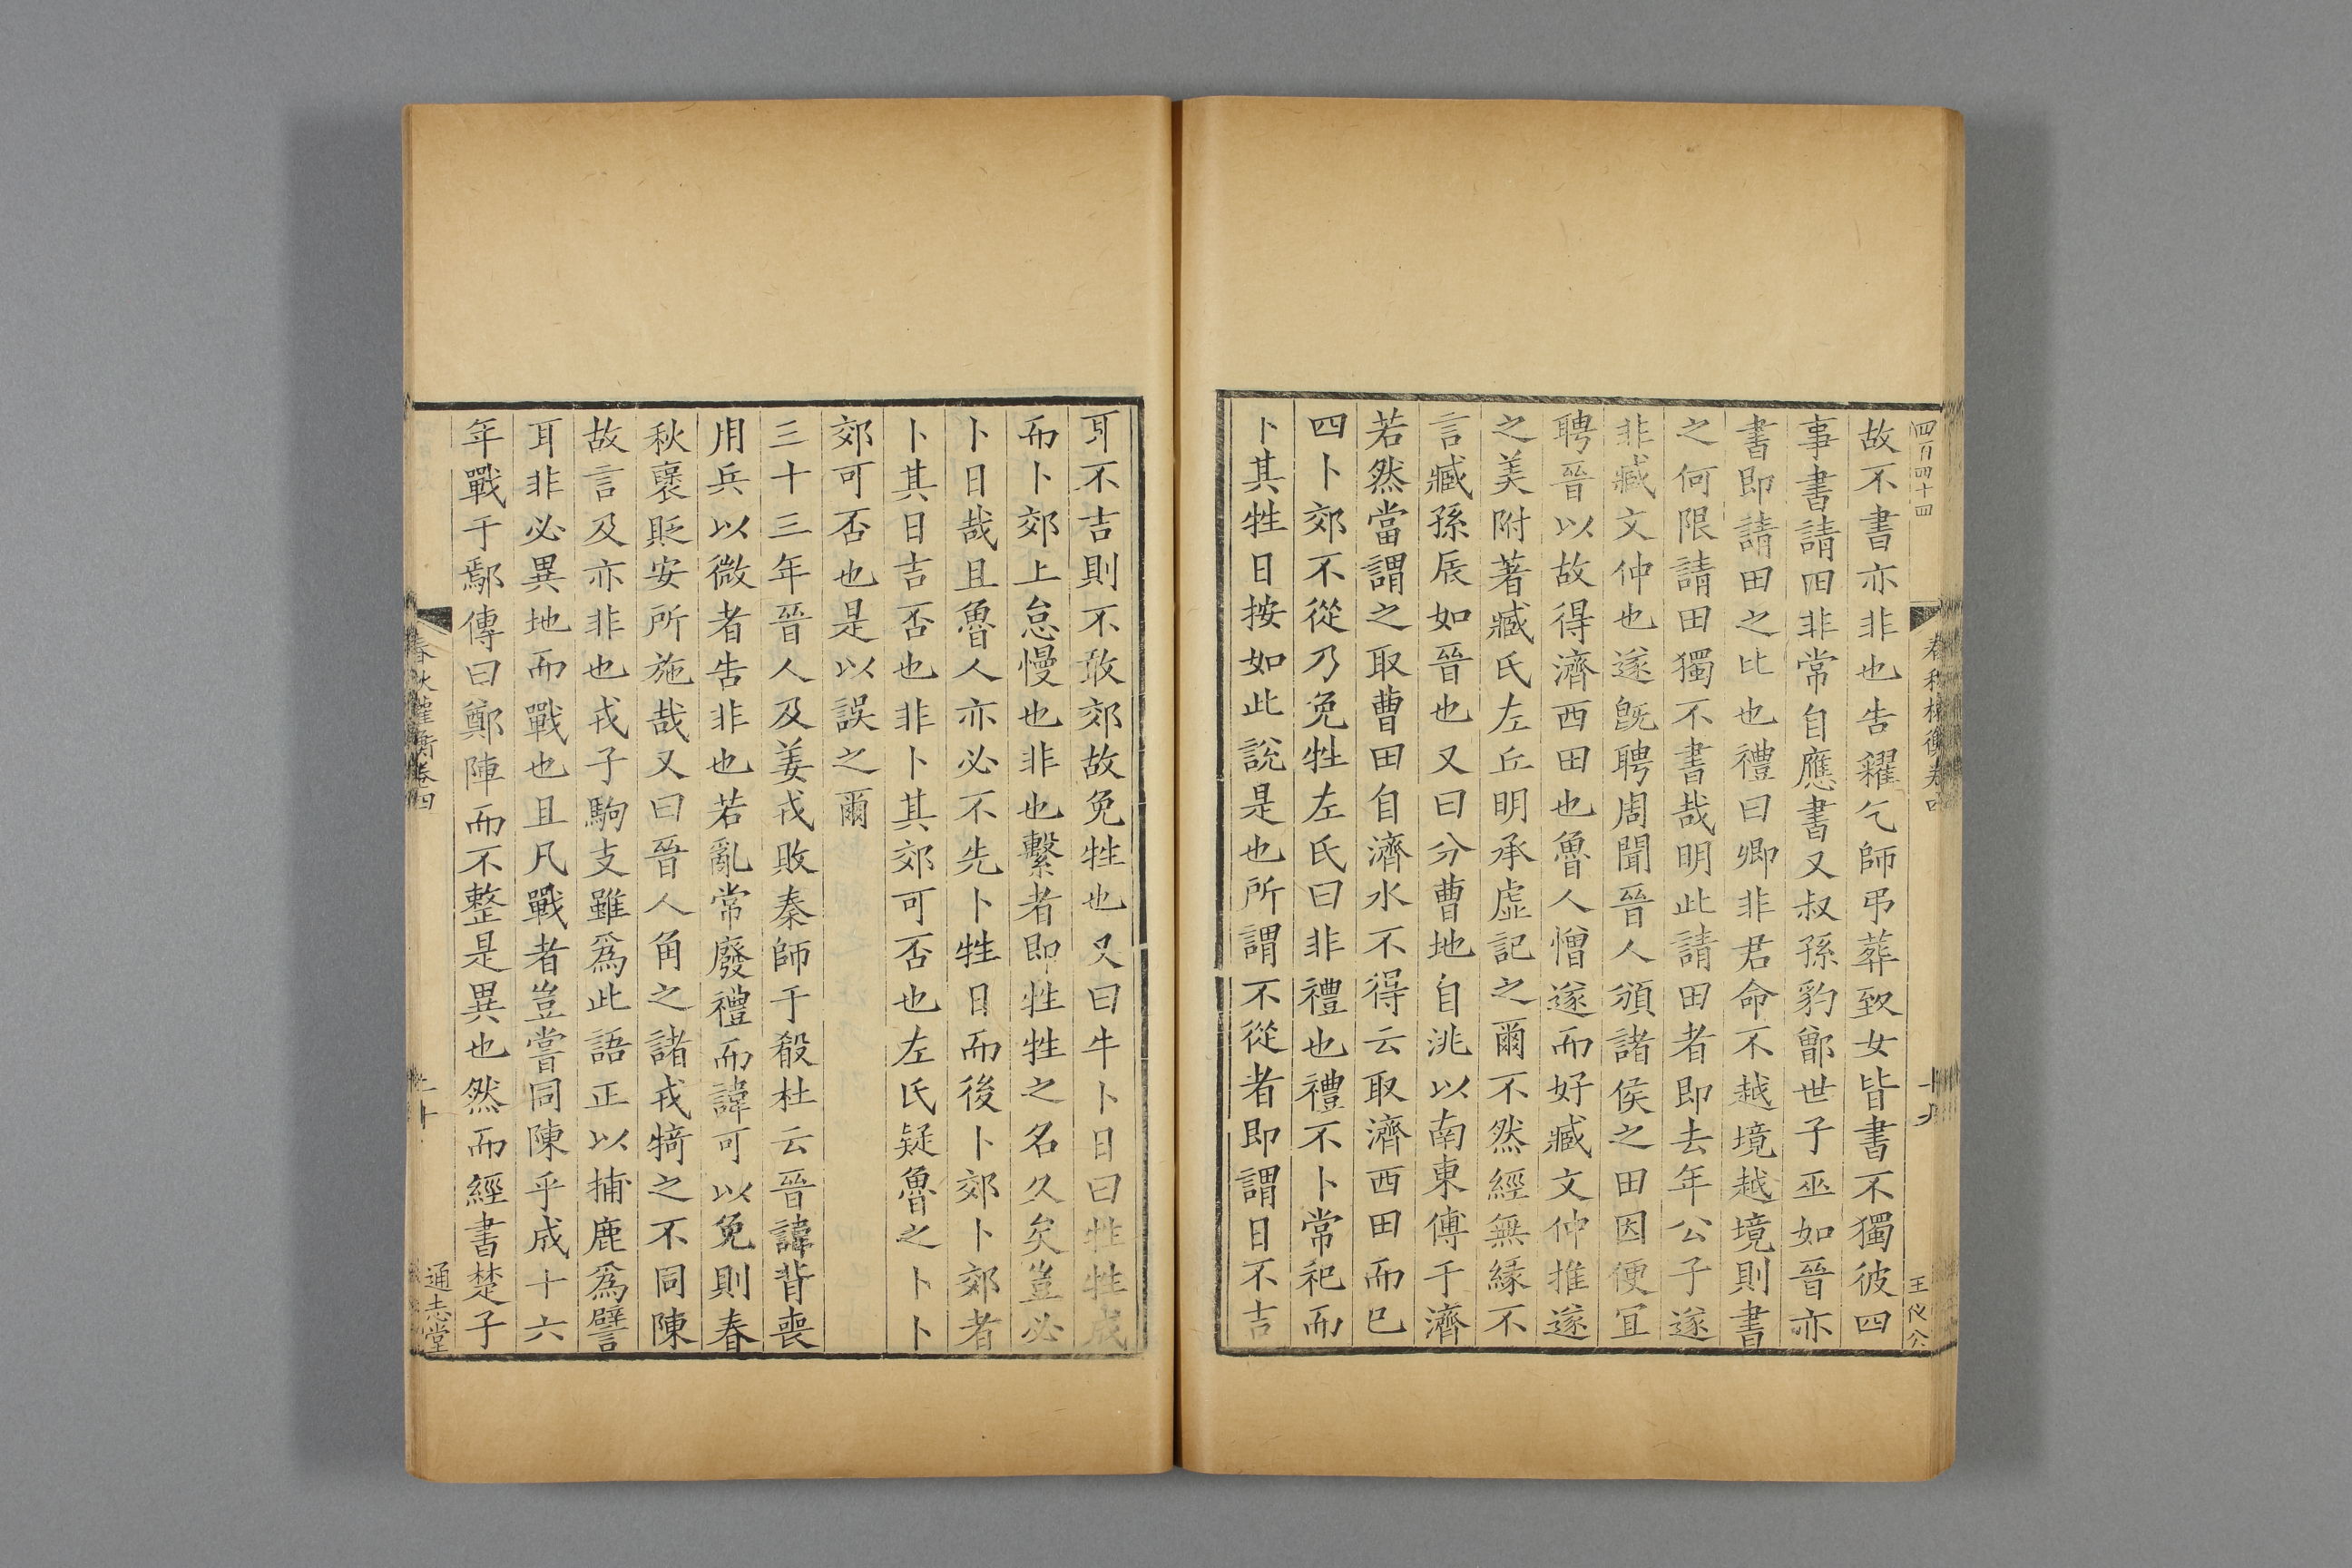 四百四十四
春秋權衡卷四
十九
王伩公
故不書亦非也告糴乞師弔葬致女皆書不獨彼四
事書請田非常自應書又叔孫豹鄫世子巫如晉亦
書即請田之比也禮曰卿非君命不越境越境則書
之何限請田獨不書哉明此請田者即去年公子遂
非臧文仲也遂旣聘周聞晉人頒諸侯之田因便宜
聘晉以故得濟西田也魯人憎遂而好臧文仲推遂
之美附著臧氏左丘明承虛記之爾不然經無緣不
言臧孫辰如晉也又曰分曹地自洮以南東傅于濟
若然當謂之取曹田自濟水不得云取濟西田而已
四卜郊不從乃免牲左氏曰非禮也禮不卜常祀而
卜其牲日按如此說是也所謂不從者即謂日不吉
耳不吉則不敢郊故免牲也又曰牛卜日曰牲牲成
而卜郊上怠慢也非也繫者即牲牲之名久矣豈必
卜日哉且魯人亦必不先卜牲日而後卜郊卜郊者
卜其日吉否也非卜其郊可否也左氏疑魯之卜卜
郊可否也是以誤之爾
三十三年晉人及姜戎敗秦師于殽杜云晉諱背喪
用兵以微者告非也若亂常廢禮而諱可以免則春
秋襃貶安所施哉又曰晉人角之諸戎犄之不同陳
故言及亦非也戎子駒支雖爲此語正以捕鹿爲譬
耳非必異地而戰也且凡戰者豈嘗同陳乎成十六
年戰于鄢傳曰鄭陣而不整是異也然而經書楚子
春秋權衡卷四
二十
通志堂